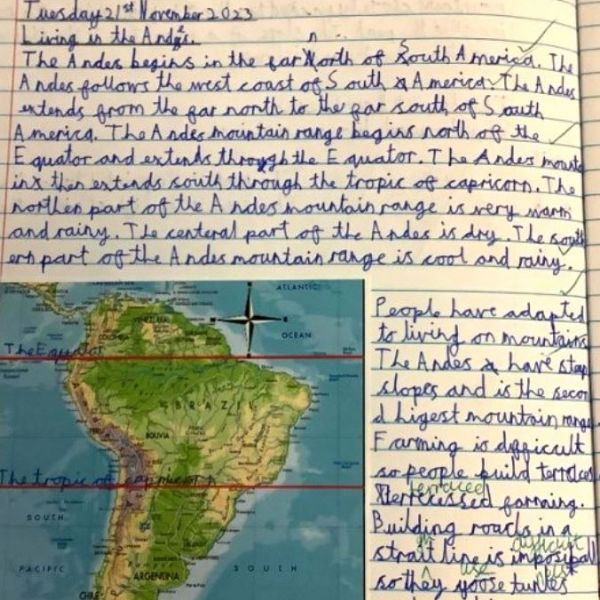 Tuesday 21st November 2023
Living in the Andes.
The Andes begins in the far North of South America. The
Andes follows the west coast of South America. The Andes
extends from the far north to the far south of South
America. The Andes mountain range begins north of the
Equator and extends through the Equator. The Andes mounta
inx then extends south through the tropic of capricorn. The
northen part of the Andes mountain range is very warm
and rainy. The centeral part of the Andes is dry. The south
ern part of the Andes mountain range is cool and rainy.
ATLANTIC
OCEAN
COLOMBIA
The Equator
BRAZIL
BOLIVIA
The tropic of capricorn
SOUTH
PACIFIC
SOUTH
ARGENTINA
CHILE
People have adapted
to living on mountains
The Andes have steep
slopes and is the secon
d higest mountain range
Farming is difficult
so people build terraces
terraced
farming.
Building roads in a
difficult
strait line is imposibal
use
so they yoose